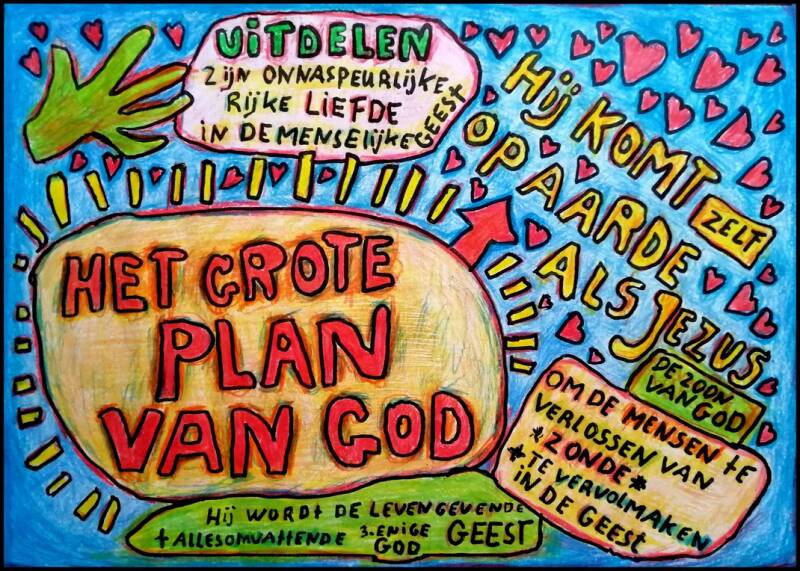 UiTDELEN
ZijN ONNASPEURLijKE
RijKE LiEFDE
iN DE MENSELijKE GEEST
HET GROTE
PLAN
VAN GOD
Hij KOMT ZELF
OP AARDE
ALS JEZUS
DE ZOON
VAN GOD
OM DE MENSEN tE
VERLOSSEN VAN
*ZONDE*
+ TE VERVOLMAKEN
iN DE GEEST
Hij WORDt DE LEVENGEVENDE
+ ALLESOMVAttENDE 3-ENiGE GOD GEEST